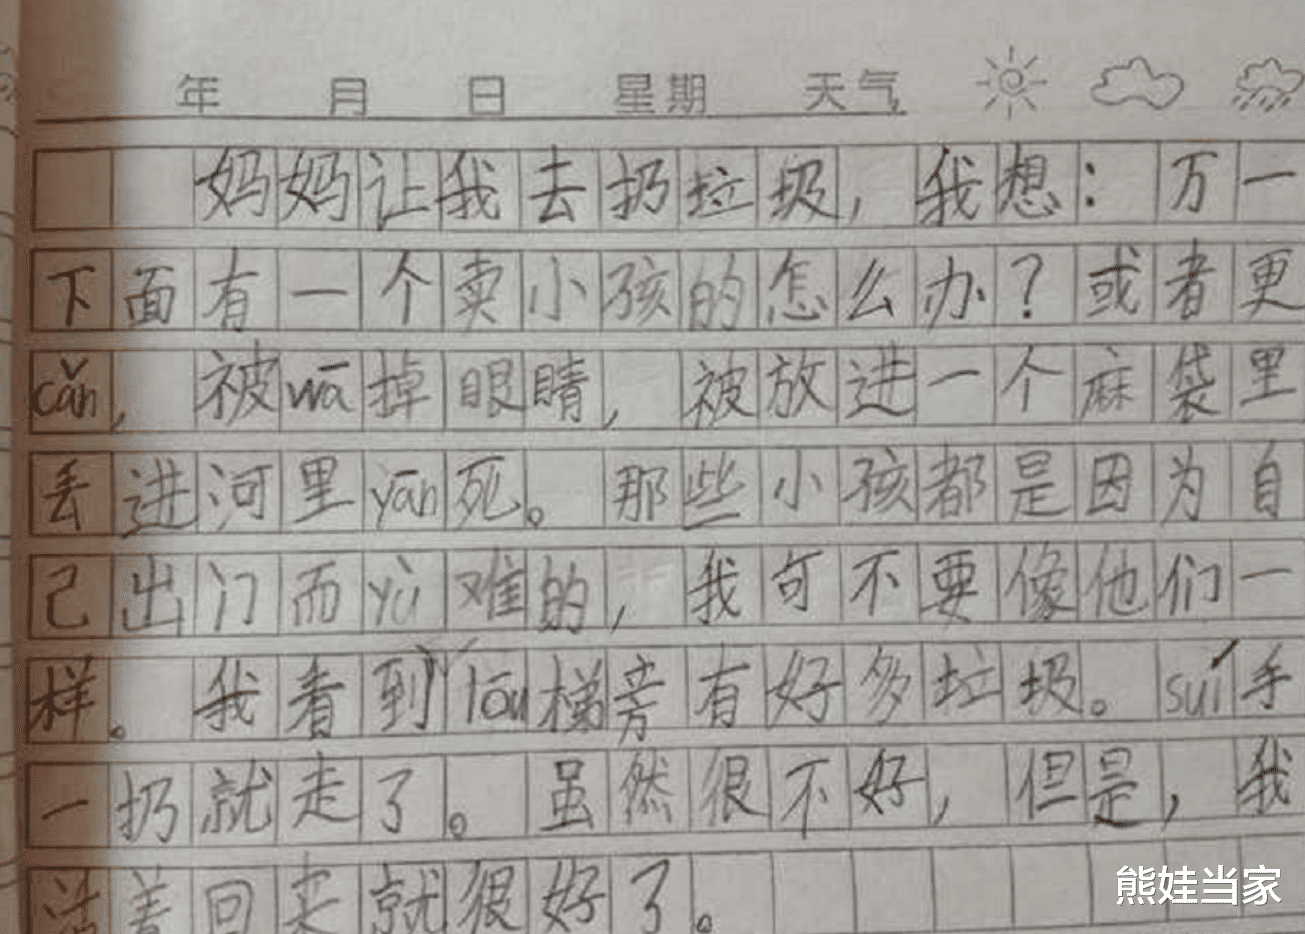 年 月 日 星期 天气
妈妈让我去扔垃圾，我想：万一
下面有一个卖小孩的怎么办？或者更
cǎn，被wā掉眼睛，被放进一个麻袋里
丢进河里yān死。那些小孩都是因为自
己出门而yù难的，我可不要像他们一
样。我看到lōu梯旁有好多垃圾。suí手
一扔就走了。虽然很不好，但是，我
活着回来就很好了。
熊娃当家